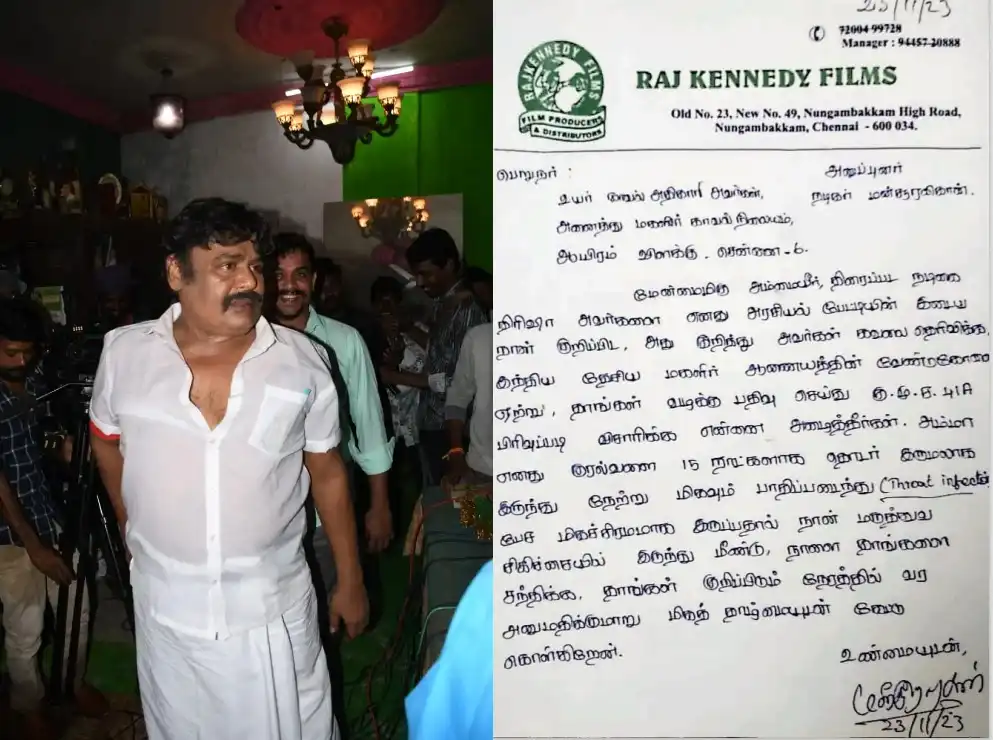 23/11/23
72004 99728
Manager : 94457 20888
RAJKENNEDY FILMS
FILM PRODUCERS
& DISTRIBUTORS
RAJ KENNEDY FILMS
Old No. 23, New No. 49, Nungambakkam High Road,
Nungambakkam, Chennai - 600 034.
பெறுநர் :
உயர் அதிகாரி அவர்கள்,
அனைத்து மகளிர் காவல் நிலையம்,
ஆயிரம் விளக்கு. சென்னை-6.
அனுப்புனர்
நடிகர் மன்சூரலிகான்.
மேன்மைமிகு அம்மையீர், திரைப்பட நடிகை
திரிஷா அவர்களை எனது அரசியல் பேட்டியின் இடையே
நான் குறிப்பிட, அது குறித்து அவர்கள் கவலை தெரிவிக்க,
இந்திய தேசிய மகளிர் ஆணையத்தின் வேண்டுகோளை
ஏற்று, தாங்கள் வழக்கு பதிவு செய்து கு.மு.ச. 41A
பிரிவுப்படி விசாரிக்க என்னை அழைத்தீர்கள். அம்மா
எனது குரல்வளை 15 நாட்களாக தொடர் இருமலாக
இருந்து நேற்று மிகவும் பாதிப்படைந்து (Throat infection)
பேச மிகச்சிரமமாக இருப்பதால் நான் மருத்துவ
சிகிச்சையில் இருந்து மீண்டு, நாளை தாங்களை
சந்திக்க, தாங்கள் குறிப்பிடும் நேரத்தில் வர
அனுமதிக்குமாறு மிகத் தாழ்மையுடன் கேட்டு
கொள்கிறேன்.
உண்மையுடன்,
23/11/23